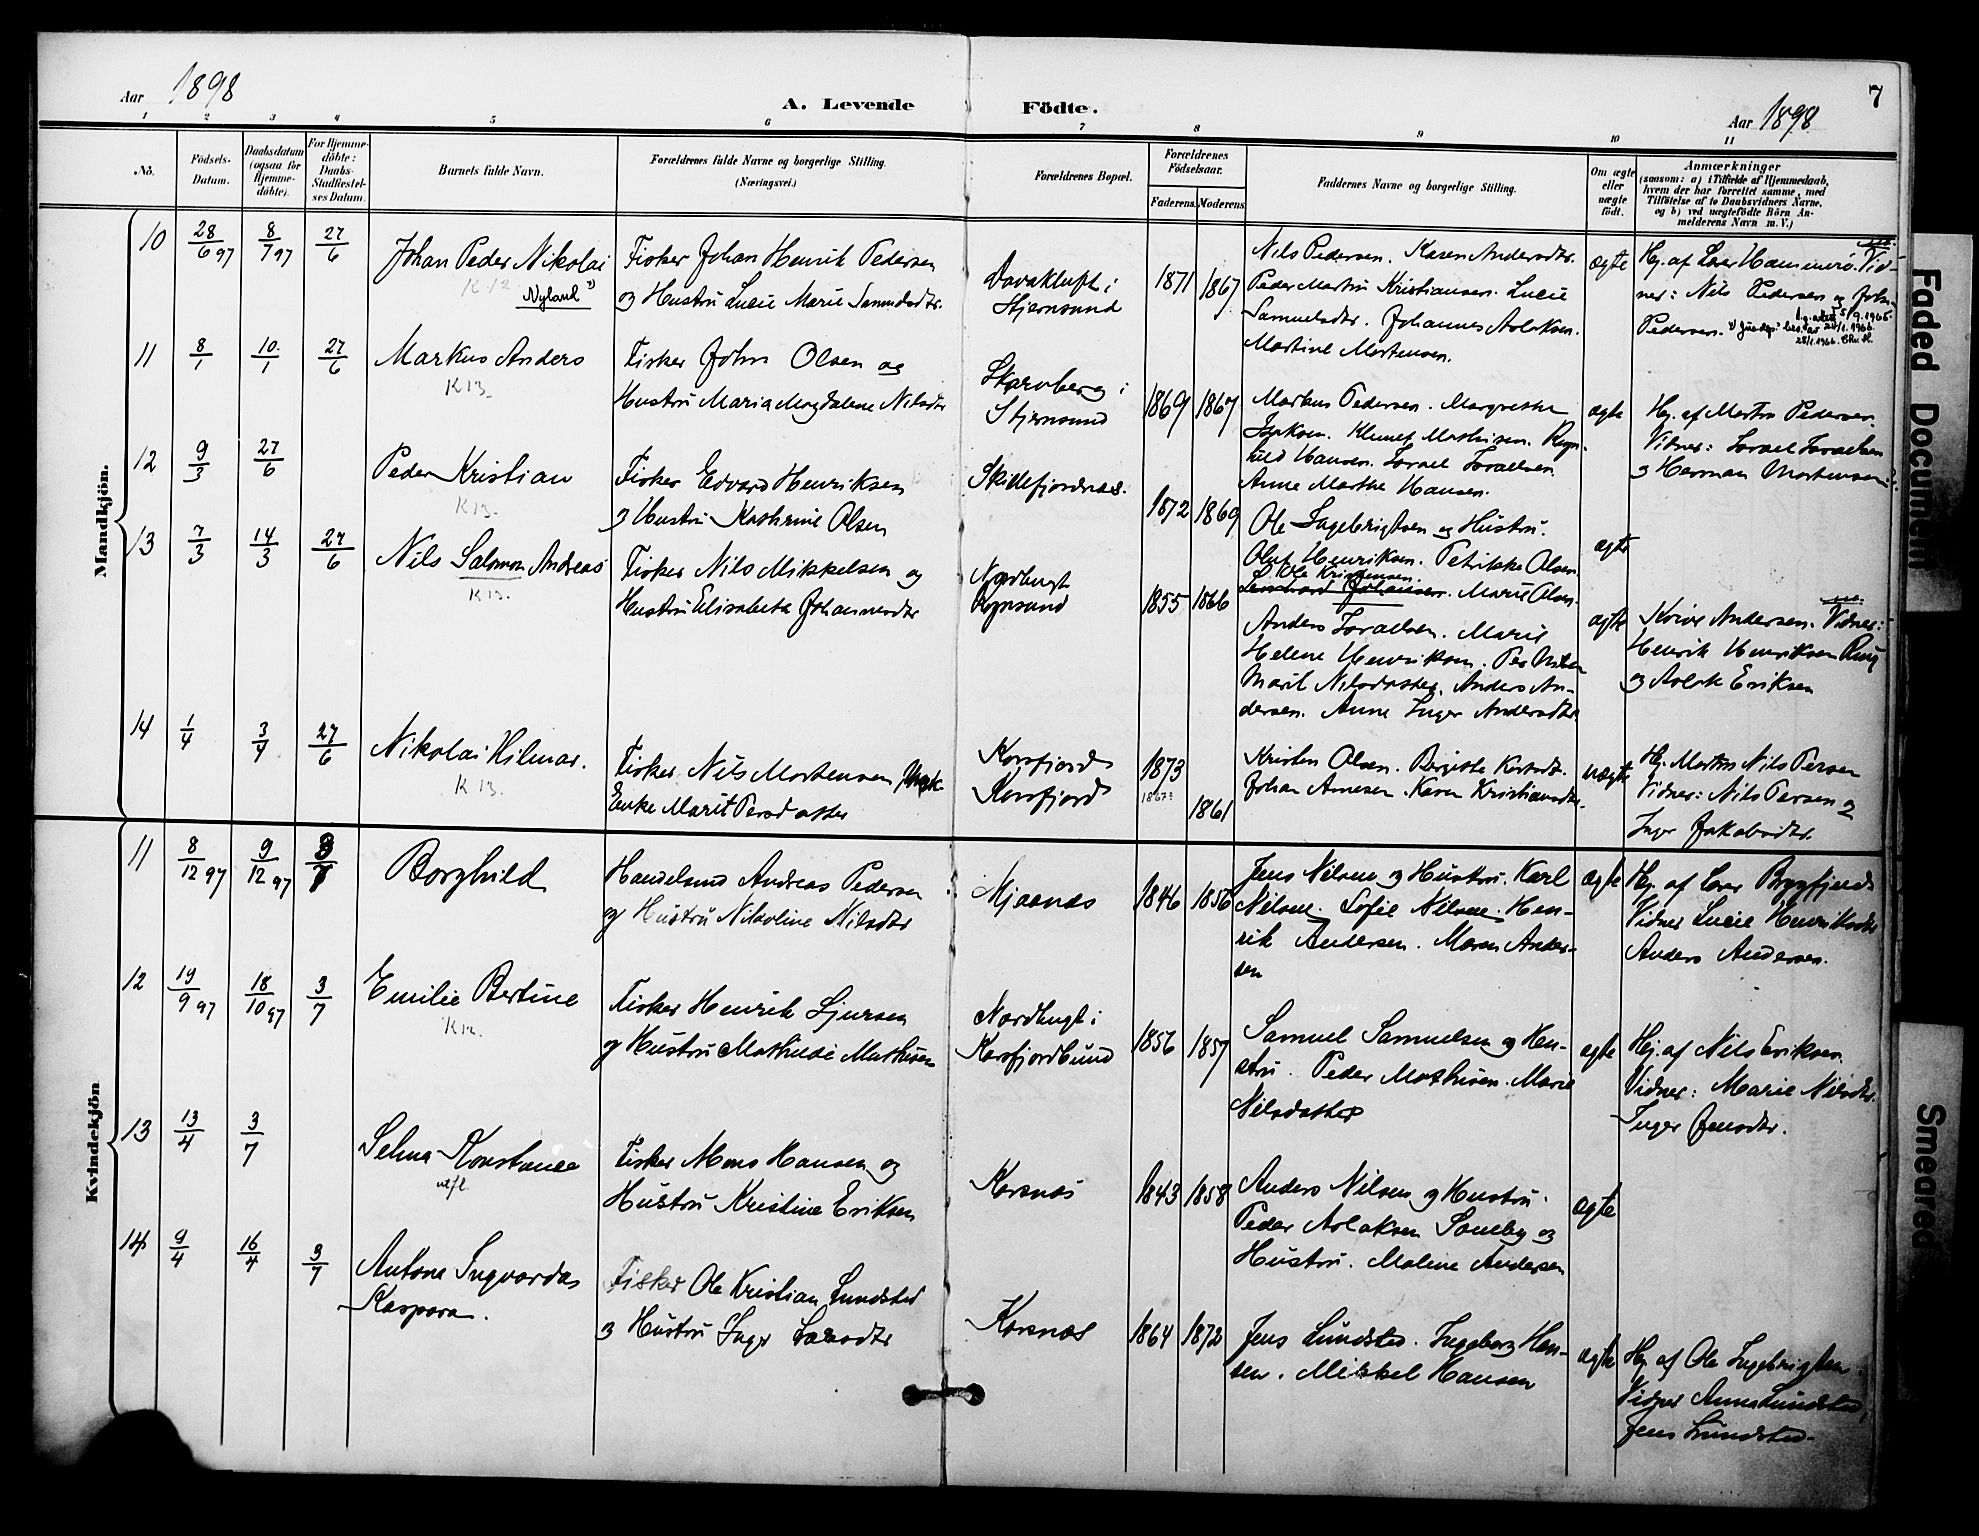 Aar 1898
A. Levende Födte.
Aar 1898
7
1 2 3 4 5 6 7 8 9 10 11
No.
Födsels-
Datum.
Daabsdatum
(ogsaa for
Hjemme-
döbte).
For Hjemme-
döbte:
Daabs-
Stadfæstel-
ses Datum.
Barnets fulde Navn.
Forældrenes fulde Navne og borgerlige Stilling.
(Næringsvei.)
Forældrenes Bopæl.
Forældrenes
Födselsaar.
Faderens. Moderens.
Faddernes Navne og borgerlige Stilling.
Om ægte
eller
uægte
födt.
Anmærkninger
(saasom: a) i Tilfælde af Hjemmedaab,
hvem der har forrettet samme, med
Tilföielse af to Daabsvidners Navne,
og b) ved uægtefödte Börn An-
melderens Navn m. V.)
Mandkjön.
10 28/6 97 8/7 97 27/6
Johan Peder Nikolai
K 12
Nyland
Fisker Johan Henrik Pedersen
og Hustru Lucie Marie Samuelsdtr.
Davakluft i
Stjernsund
1871 1867
Nils Pedersen. Karen Andersdtr.
Peder Martin Kristiansen. Lucie
Samuelsdtr. Johannes Aslaksen.
Martine Mortensen.
ægte
Hj. af Lærer Hammerö. Vid-
ner: Nils Pedersen og John
Pedersen.
11 8/1 10/1 27/6
Markus Anders
K 13
Fisker John Olsen og
Hustru Maria Magdalene Nilsdtr
Skarvberg i
Stjernsund
1869 1867
Markus Pedersen. Margrethe
Isaksen. Klemet Mathisen. Ragn-
hild Hansen. Israel Israelsen.
Anne Marthe Hansen.
ægte
Hj. af Martin Pedersen.
Vidner: Israel Israelsen
og Herman Mortensen.
12 9/3 27/6
Peder Kristian
K 13.
Fisker Edvard Henriksen
og Hustru Kathrine Olsen
Skillefjordnæs.
1872 1869
Ole Ingebrigtsen og Hustru.
Oluf Henriksen. Petrikke Olsen.
Ole Kristensen.
Leonhard Johansen. Marie Olsen.
ægte
13 7/3 14/3 27/6
Nils Salomon Andreas
K 13.
Fisker Nils Mikkelsen og
Hustru Elisabeth Johannesdtr
Nordbugt
Rognsund
1855 1866
Anders Israelsen. Marie
Helene Henriksen. Per Nilsen
Marit Nilsdatter. Anders An-
dersen. Anne Inger Andersdtr.
ægte
Andersen. Vidner:
Henrik Henriksen
og Aslak Eriksen
14 1/4 3/4 27/6
Nikolai Hilmar.
K 13.
Fisker Nils Mortensen,
Enke Marit Persdatter
Korsfjord
Korsfjord
1873
1867?
1861
Kristen Olsen. Birgitte
Johan Arnesen. Karen Kristiansdtr.
uægte
Hj. Nils Persen
Vidner: Nils Persen og
Inger Jakobsdtr.
Kvindekjön
11 8/12 97 9/12 97 3/7
Borghild
Handelsmd Andreas Pedersen
og Hustru Nikoline Nilsdtr
Mjaanæs
1846 1856
Jens Nilsen og Hustru. Karl
Nilsen. Sofie Nilsen. Hen-
rik Andersen. Maren Ander-
sen
ægte
Hj. af Lærer Byggfjords
Vidner Lucie Henriksdtr
Anders Andersen.
12 19/9 97 18/10 97 3/7
Emilie Bertine
K 12.
Fisker Henrik Sjursen
og Hustru Mathilde Mathisen
Nordbugt i
Korsfjordbund
1856 1857
Samuel Samuelsen og Hu-
stru. Peder Mathisen. Marie
Nilsdatter
ægte
Hj. af Nils Eriksen.
Vidner: Marie Nilsdtr.
Inger Jensdtr.
13 13/4 3/7
Selma Konstance
utfl.
Fisker Mons Hansen og
Hustru Kristine Eriksen
Korsnæs
1843 1858
Anders Nilsen og Hustru.
Peder Aslaksen Somby og
Hustru. Malene Andersen
ægte
14 9/4 16/4 3/7
Antona Ingvarda
Kaspara.
Fisker Ole Kristian Lundsted
og Hustru Inger Larsdtr
Korsnæs
1864 1872
Jens Lundsted. Ingeborg Han-
sen. Mikkel Hansen
ægte
Hj. af Ole Ingebrigtsen
Vidner Anna Lundsted,
Jens Lundsted.
Faded Document
Smeared